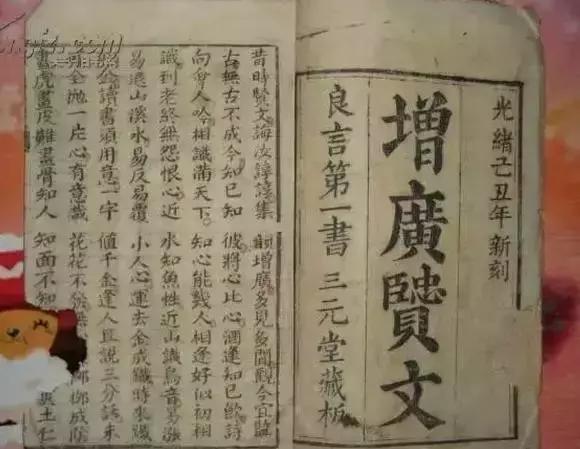 光緒己丑年新刻
增廣賢文
良言第一書 三元堂藏板
昔時賢文誨汝諄諄集韻增廣多見多聞觀今宜鑑
古無古不成今知已知彼將心比心酒逢知已飲詩
向會人吟相識滿天下知心能幾人相逢好似初相
識到老終無怨恨心近水知魚性近山識鳥音易漲
易退山溪水易反易覆小人心運去金成鐵時來鐵
金讀書須用意一字值千金逢人且說三分話未
全拋一片心有意栽花花不發無柳成陰
畫虎畫皮難畫骨知人知面不知土仁